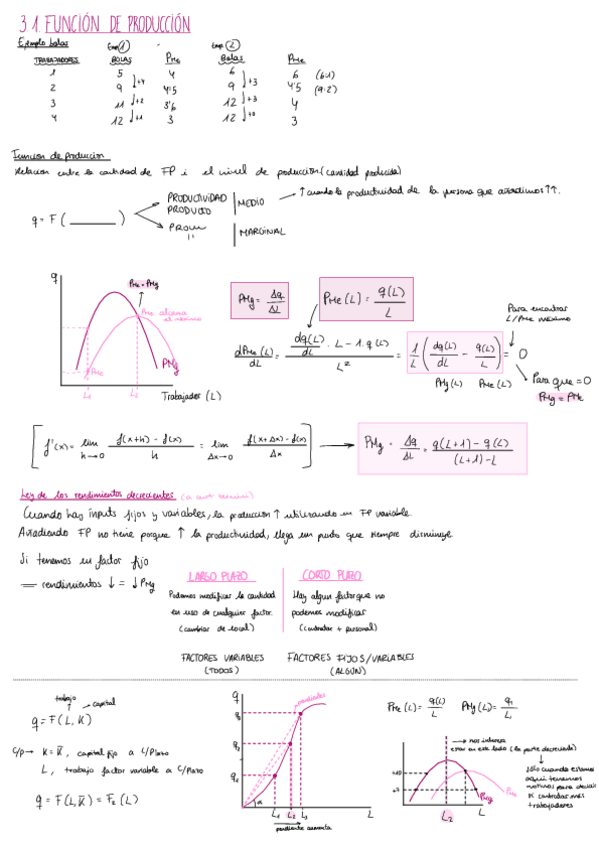 3.1. FUNCIÓN DE PRODUCCIÓN
Ejemplo bolas Emp ① Emp ②
TRABAJADORES BOLAS PMe BOLAS PMe
1 5 4 6 6 (6:1)
2 9 4'5 9 4'5 (9:2)
3 11 3'6 12 4
4 12 3 12 3
+4 +2 +1 +3 +3 +0
Función de producción
Relación entre la cantidad de FP i el nivel de producción (cantidad producida)
q = F ( )
PRODUCTIVIDAD
PRODUCTO
MEDIO
MARGINAL
↑ cuando la productividad de la persona que añadimos ↑↑.
q
PMe = PMg
PMe alcanza el máximo
PMe
PMg
L1 L2 Trabajador (L)
PMg = Δq/ΔL
PMe (L) = q(L)/L
Para encontrar
L/PMe máximo
dPMe (L)/dL = (dq(L)/dL · L - 1 · q(L))/L² = 1/L (dq(L)/dL - q(L)/L) = 0
PMg (L) PMe (L)
Para que = 0
PMg = PMe
f'(x) = lim h→0 (f(x+h) - f(x))/h = lim Δx→0 (f(x+Δx) - f(x))/Δx
PMg = Δq/ΔL = (q(L+1) - q(L))/((L+1) - L)
Ley de los rendimientos decrecientes
Cuando hay inputs fijos y variables, la producción ↑ utilizando un FP variable.
Añadiendo FP no tiene porque ↑ la productividad, llega un punto que siempre disminuye.
Si tenemos un factor fijo
rendimientos ↓ = ↓ PMg
LARGO PLAZO
Podemos modificar la cantidad
en uso de cualquier factor.
(cambiar de local)
CORTO PLAZO
Hay algun factor que no
podemos modificar
(contratar + personal)
FACTORES VARIABLES
(TODOS)
FACTORES FIJOS/VARIABLES
(ALGÚN)
trabajo
capital
q = F (L, K)
C/P → K = K̄, capital fijo a C/Plazo
L, trabajo factor variable a C/Plazo
q = F (L, K̄) = F₂ (L)
q
pendientes
q3
q2
q1
α
L1 L2 L3 L
pendiente aumenta
PMe (L) = q(L)/L
nos interesa
estar en este lado (la parte decreciente)
sólo cuando estamos
aquí tenemos
motivos para decidir
si contratar más
trabajadores
PMg
PMe
L2 L